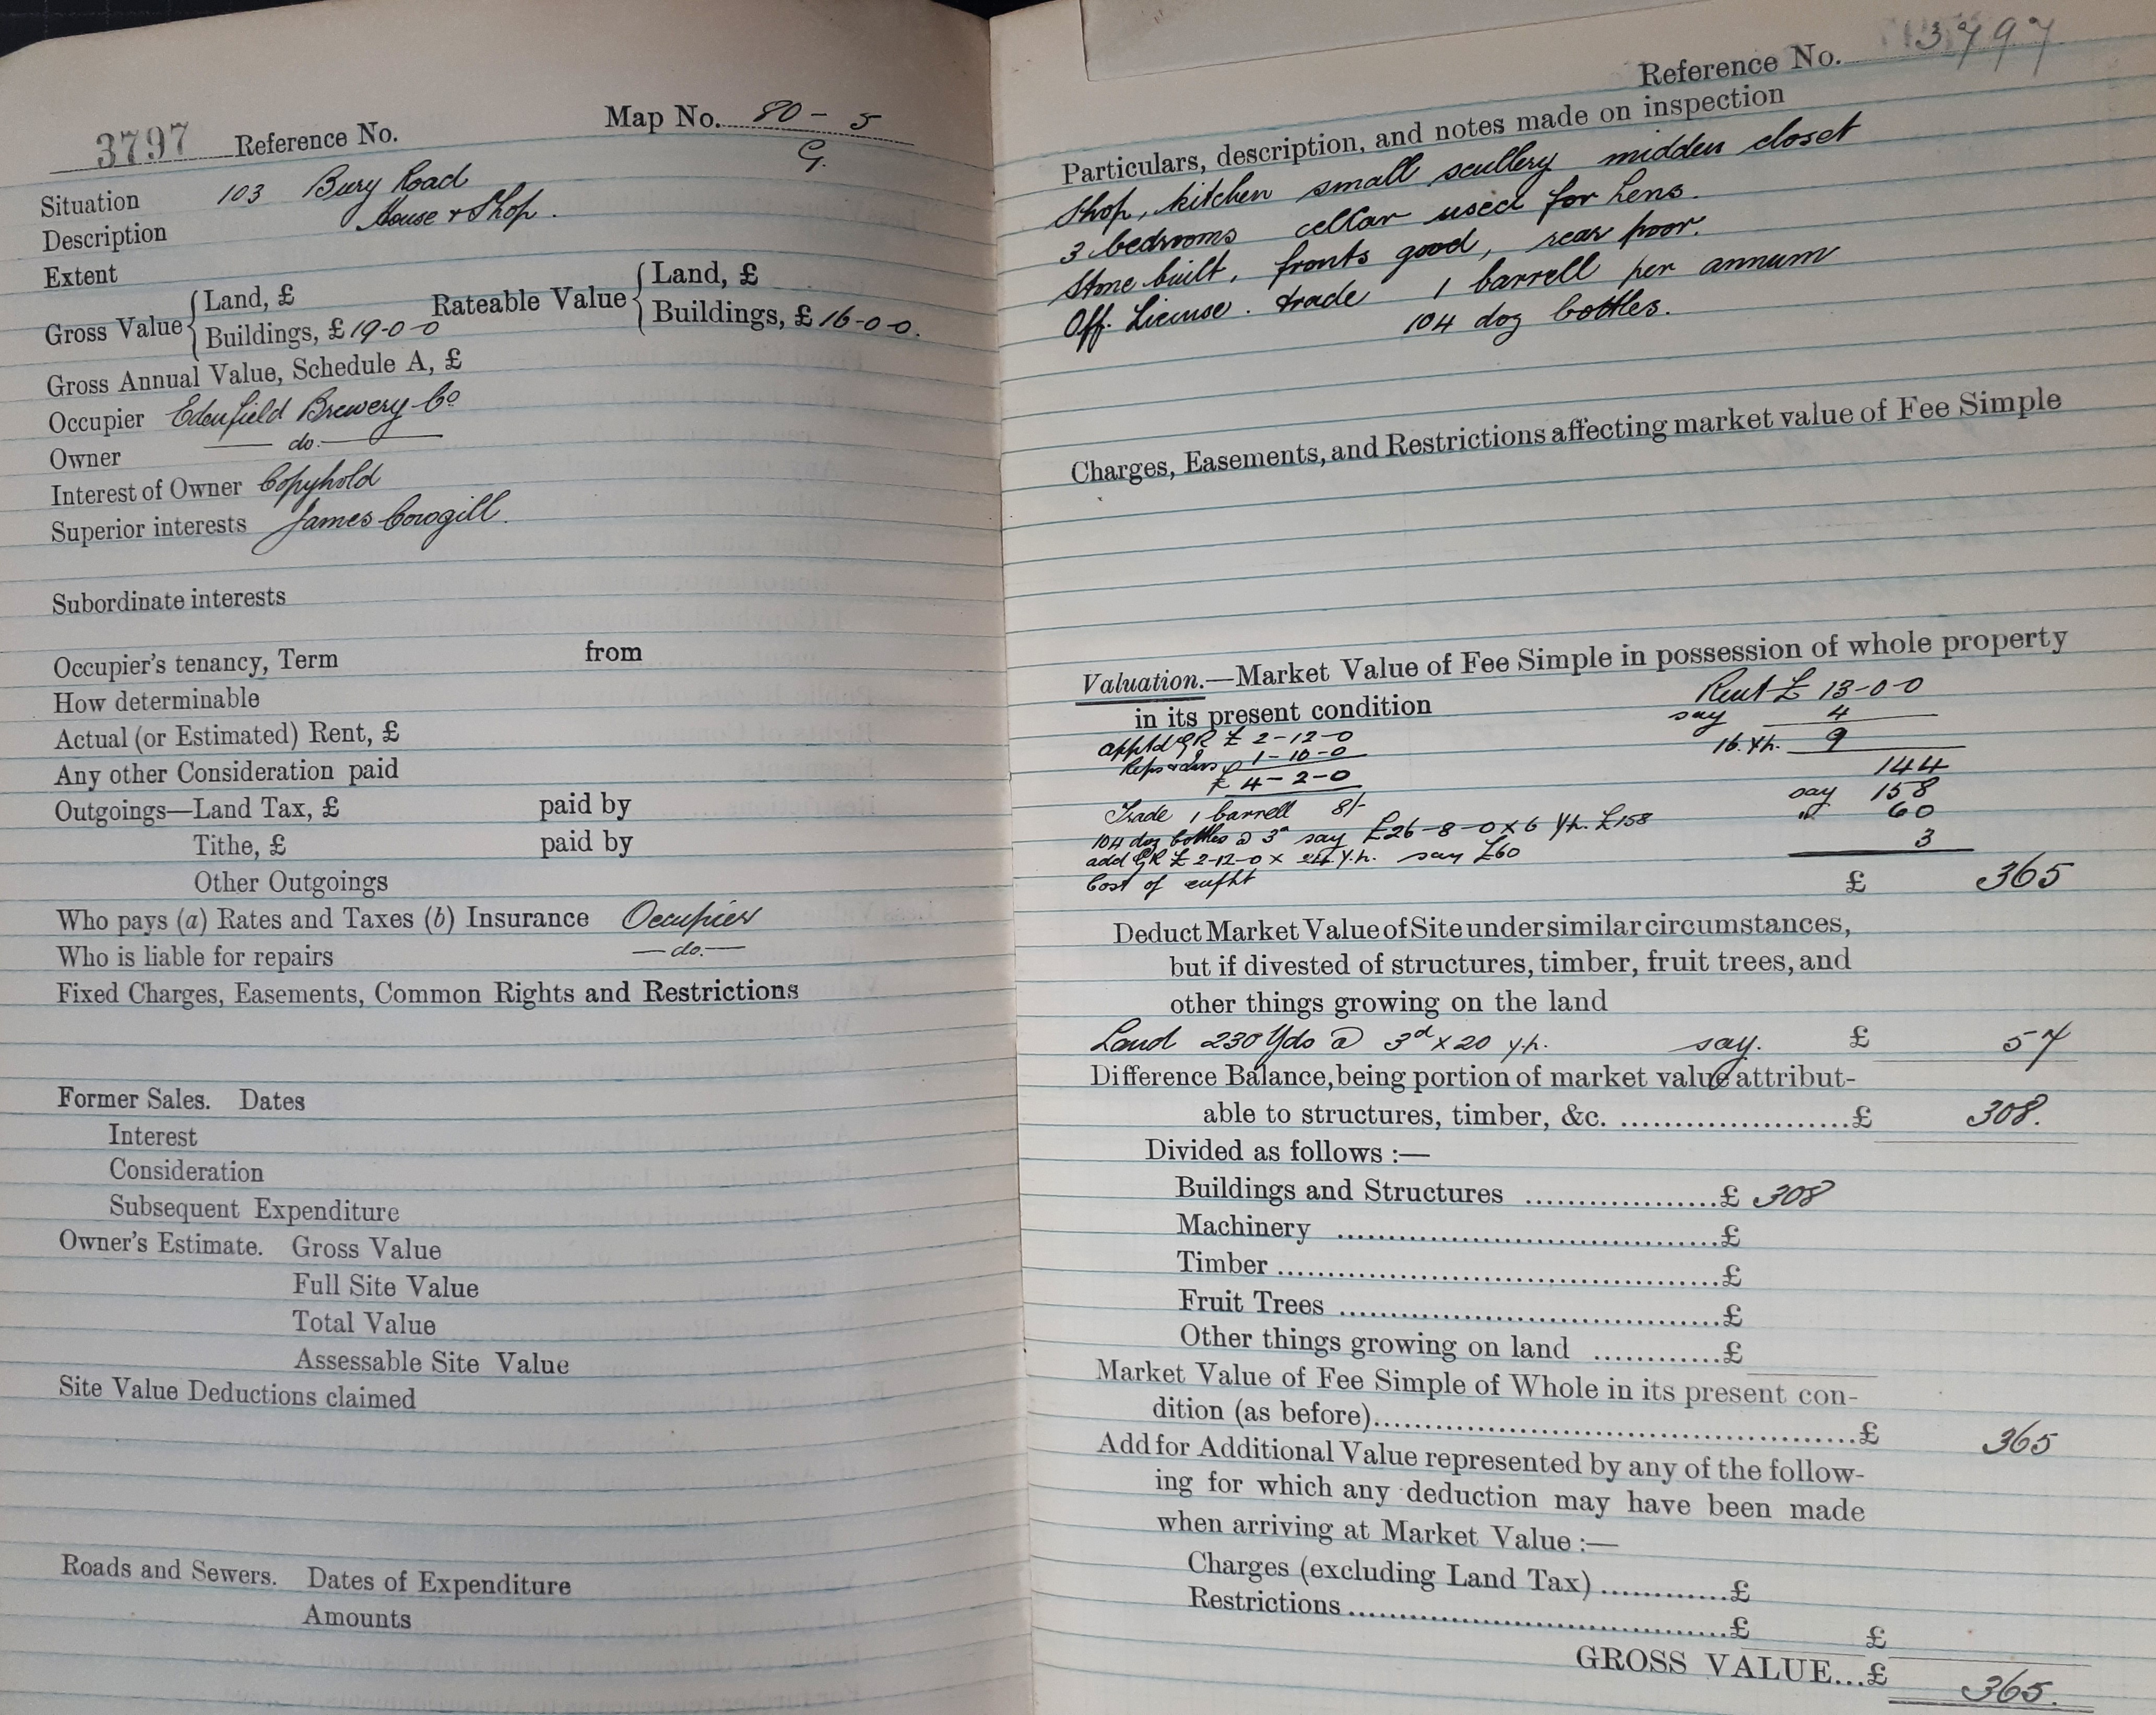 3797 Reference No. Map No. 80 - 5
G.
Situation 103 Bury Road
Description House & Shop.
Extent
Gross Value { Land, £ Rateable Value { Land, £
Buildings, £ 19-0-0 Buildings, £ 16-0-0.
Gross Annual Value, Schedule A, £
Occupier Edenfield Brewery Co
Owner — do. —
Interest of Owner Copyhold
Superior interests James Cowgill.
Subordinate interests
Occupier's tenancy, Term from
How determinable
Actual (or Estimated) Rent, £
Any other Consideration paid
Outgoings—Land Tax, £ paid by
Tithe, £ paid by
Other Outgoings
Who pays (a) Rates and Taxes (b) Insurance Occupier
Who is liable for repairs — do. —
Fixed Charges, Easements, Common Rights and Restrictions
Former Sales. Dates
Interest
Consideration
Subsequent Expenditure
Owner's Estimate. Gross Value
Full Site Value
Total Value
Assessable Site Value
Site Value Deductions claimed
Roads and Sewers. Dates of Expenditure
Amounts
Reference No. 3797
Particulars, description, and notes made on inspection
Shop, kitchen small scullery midden closet
3 bedrooms cellar used for hens.
Stone built, fronts good, rear poor.
Off. License. trade 1 barrell per annum
104 doz bottles.
Charges, Easements, and Restrictions affecting market value of Fee Simple
Valuation.—Market Value of Fee Simple in possession of whole property
in its present condition Rent £ 13-0-0
apptd GR £ 2-12-0 say 4
1-10-0 16. y.p. 9
£ 4-2-0 144
Trade 1 barrell 8/- say 158
104 doz bottles @ 3d say £26-8-0 x 6 y.p. £158 " 60
add GR £ 2-12-0 x y.p. say £60 3
Cost of enfht £ 365
Deduct Market Value of Site under similar circumstances,
but if divested of structures, timber, fruit trees, and
other things growing on the land
Land 230 Yds @ 3d x 20 y.p. say. £ 57
Difference Balance, being portion of market value attribut-
able to structures, timber, &c. ....................£ 308.
Divided as follows :—
Buildings and Structures .................£ 308
Machinery ..................................£
Timber .......................................£
Fruit Trees ..................................£
Other things growing on land ............£
Market Value of Fee Simple of Whole in its present con-
dition (as before)..........................................£ 365
Add for Additional Value represented by any of the follow-
ing for which any deduction may have been made
when arriving at Market Value :—
Charges (excluding Land Tax) ............£
Restrictions ..................................£ £
GROSS VALUE...£ 365.